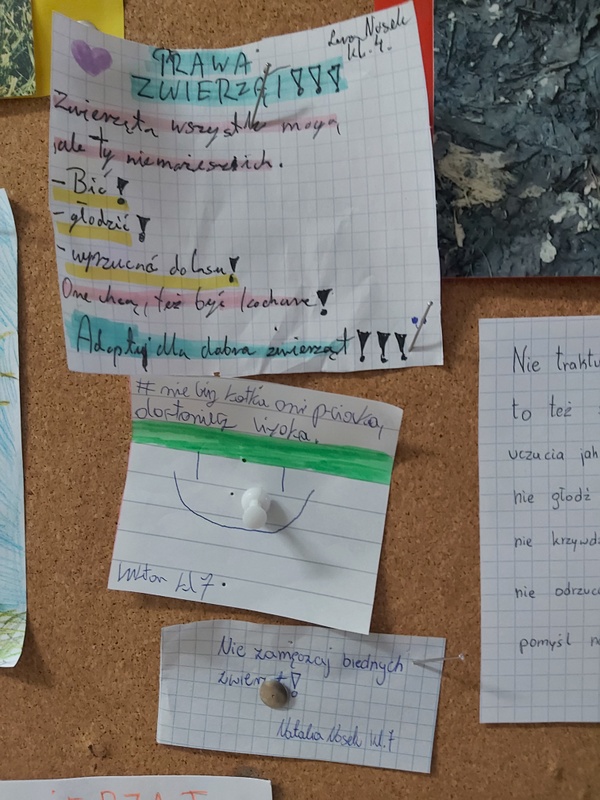 Nosek
kl. 4.
PRAWA
ZWIERZĄT!!!!
Zwierzęta wszystko mogą
ale ty nie możesz ich.
- Bić!
- głodzić!
- wyrzucać do lasu!
One chcą, też być kochane!
Adoptuj dla dobra zwierząt!!!
# nie bij kotka ani pieska,
dostaniesz
Wiktor kl 7.
Nie zamęczaj biednych
zwierząt!
Natalia Nosek kl.7
Nie traktu
to też
uczucia jak
nie głodź
nie krzywdź
nie odrzuc
pomyśl